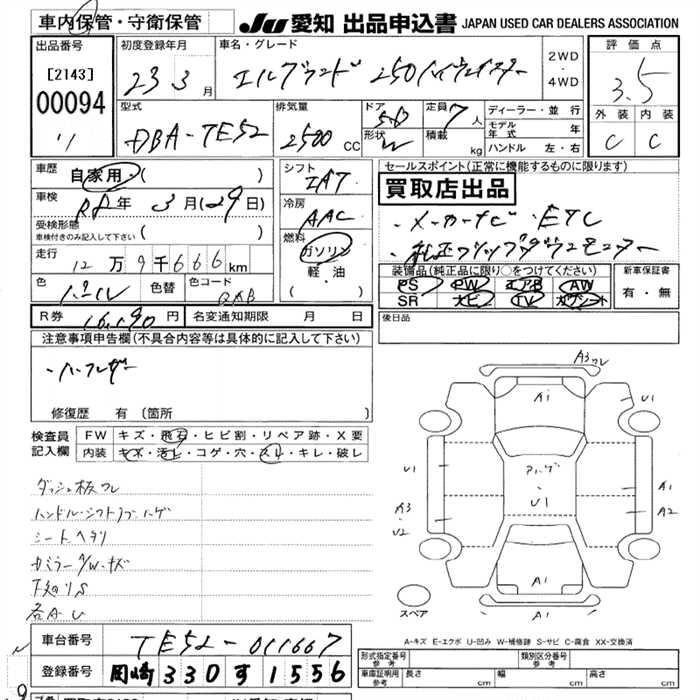 車内保管・守衛保管
JU 愛知 出品申込書 JAPAN USED CAR DEALERS ASSOCIATION
出品番号
[2143]
00094
初度登録年月
23 3月
車名・グレード
エルグランド 250ハイウェイスター
2WD
・
4WD
評価点
3.5
外装 内装
C C
型式
DBA-TE52
排気量
2500 CC
ドア
5D
形状
W
定員 7人
積載 kg
ディーラー・並行
モデル年式 年
ハンドル 左・右
車歴
自家用・( )
車検
R8年 3月(29日)
受検形態
車検付きのみ記入して下さい ( )
走行
12万9千666km
色
色替
色コード
QAB
シフト
IAT
冷房
AAC
燃料
ガソリン
軽油
・( )
セールスポイント(正常に機能するものに限ります)
買取店出品
・メーカーナビ・ETC
・純正フリップダウンモニター
装備品(純正品に限り○をつけてください)
PS PW エアB AW
SR ナビ TV カワシート
新車保証書
有・無
R券 16,190円 名変通知期限 月 日
後日品
注意事項申告欄(不具合内容等は具体的に記入して下さい)
修復歴 有(箇所 )
検査員記入欄
FW キズ・飛石・ヒビ割・リペア跡・X要
内装 キズ・汚レ・コゲ・穴・スレ・キレ・破レ
ダッシュ板ワレ
ハンドル・シフトノブハゲ
シートヘタリ
下廻りS
各A U
A3 ワレ
A1
U1
U1
U1
A3
・
U2
A1
A2
A1
スペア
A-キズ E-エクボ U-凹み W-補修跡 S-サビ C-腐食 XX-交換済
車台番号 TE52-011667
登録番号 岡崎 330 す 1556
形式指定番号 参考
類別区分番号 参考
車庫証明用 参考 長さ cm 幅 cm 高さ cm